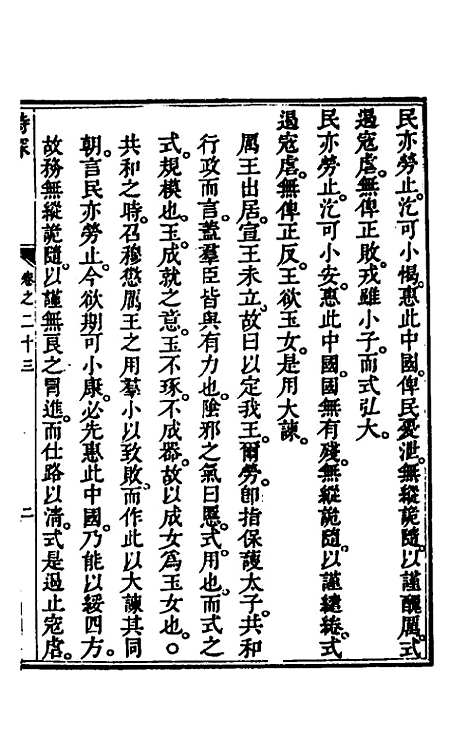 民亦勞止。汔可小愒。惠此中國。俾民憂泄。無縱詭隨。以謹醜厲。式
遏寇虐。無俾正敗。戎雖小子。而式弘大。
民亦勞止。汔可小安。惠此中國。國無有殘。無縱詭隨。以謹繾綣。式
遏寇虐。無俾正反。王欲玉女。是用大諫。
厲王出居。宣王未立。故曰以定我王。爾勞。即指保護太子。共和
行政而言。蓋羣臣皆與有力也。陰邪之氣曰慝。式。用也。而式之
式。規模也。玉。成就之意。玉不琢。不成器。故以成女爲玉女也。○
共和之時。召穆懲厲王之用羣小以致敗。而作此以大諫其同
朝。言民亦勞止。今欲期可小康。必先惠此中國。乃能以綏四方。
故務無縱詭隨。以謹無良之冒進。而仕路以清。式是遏止寇虐。
詩深
卷之二十三
二